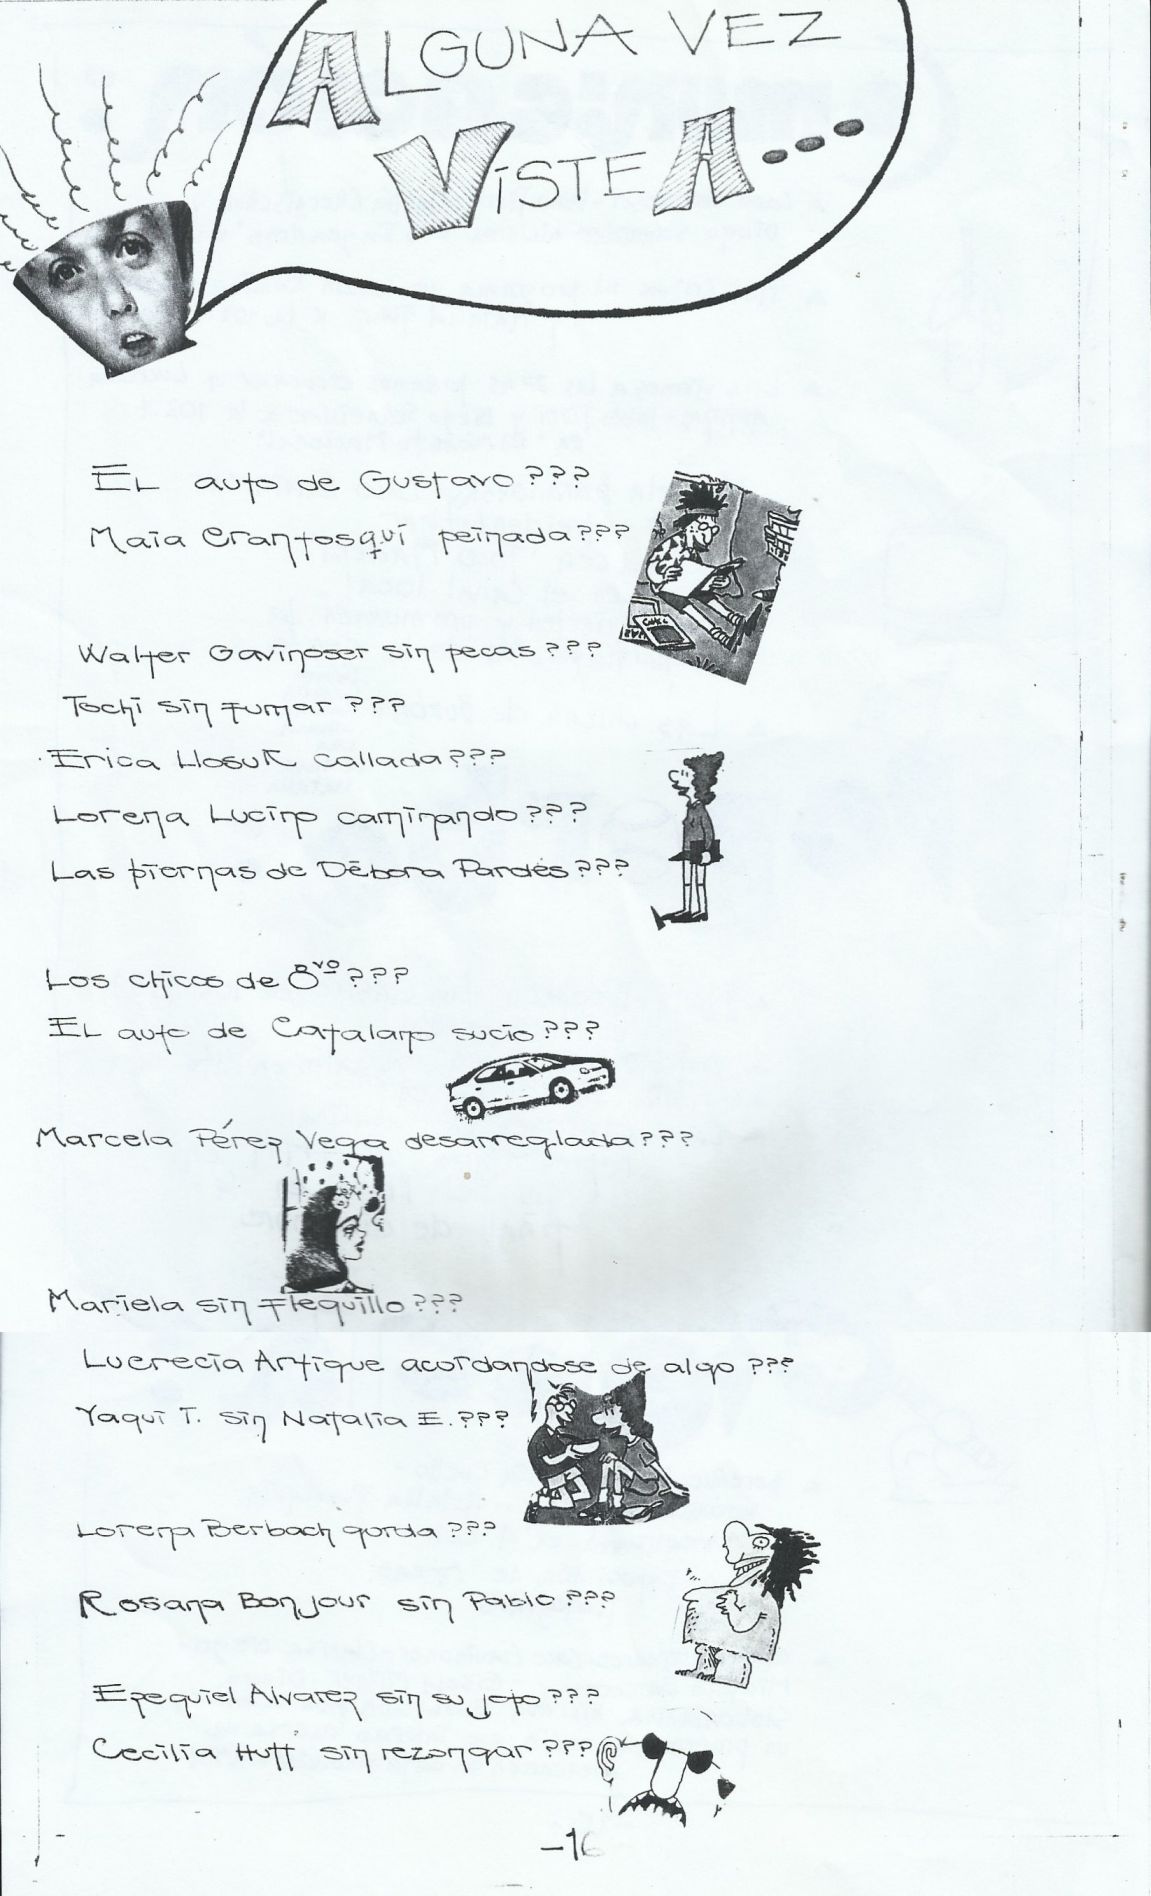 ALGUNA VEZ
VISTE A...
EL auto de Gustavo???
Maia Crantosquí peinada???
Walter Gavinoser sin pecas???
Tochi sin fumar???
Erica Llosuk callada???
Lorena Lucino caminando???
Las piernas de Débora Pardés???
Los chicos de 8vo???
EL auto de Catalano sucio???
Marcela Pérez Vega desarreglada???
Mariela sin flequillo???
Lucrecia Artique acordandose de algo???
Yaqui T. sin Natalia E.???
Lorena Berbach gorda???
Rosana Bonjour sin Pablo???
Ezequiel Alvarez sin su jopo???
Cecilia Hutt sin rezongar???
-16